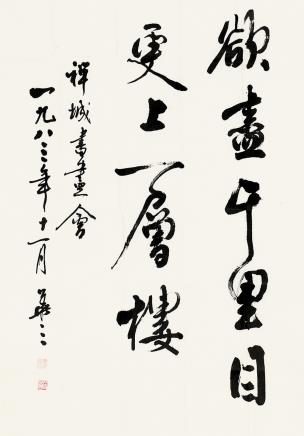 欲盡千里目
更上一層樓
禪城書畫會
一九八三年十一月